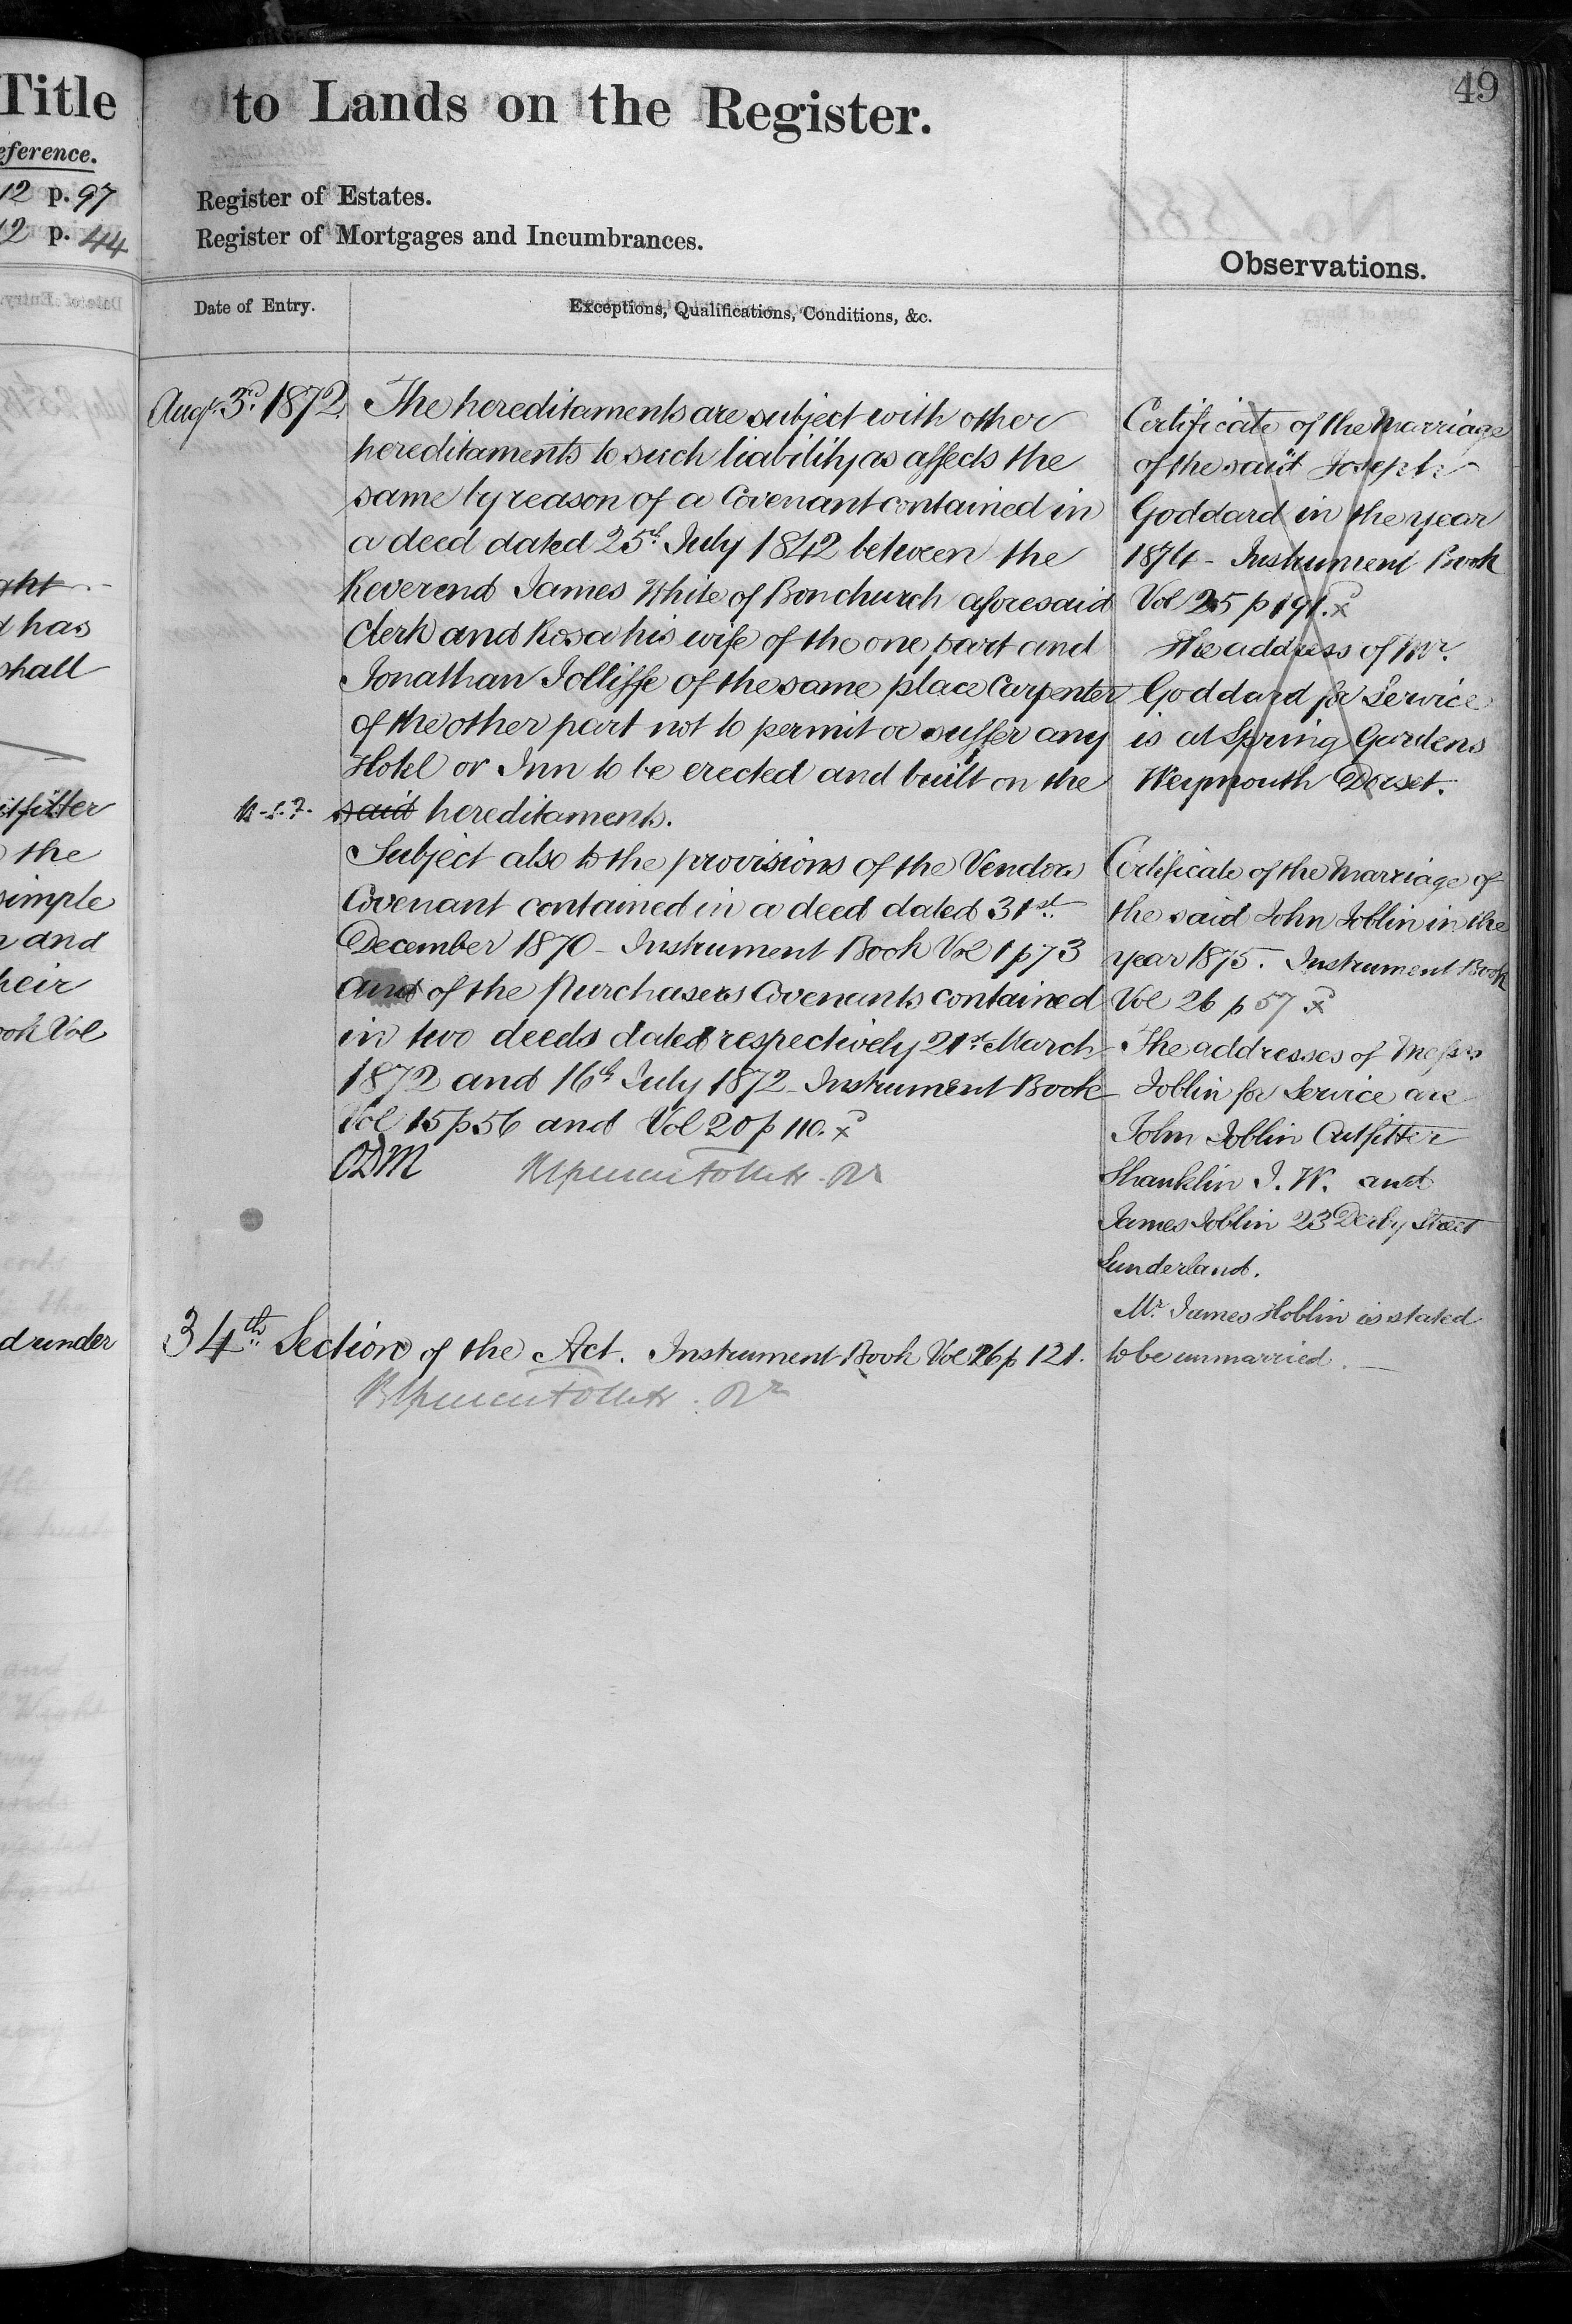 Title
eference.
12 p. 97
12 p. 44
ght
d has
shall
itfitter
the
simple
and
heir
ook Vol
d under
49
to Lands on the Register.
Register of Estates.
Register of Mortgages and Incumbrances.
Observations.
Date of Entry.
Exceptions, Qualifications, Conditions, &c.
Augt. 3rd. 1872.
The hereditaments are subject with other
hereditaments to such liability as affects the
same by reason of a Covenant contained in
a deed dated 25th July 1842 between the
Reverend James White of Bonchurch aforesaid
Clerk and Rosa his wife of the one part and
Jonathan Jolliffe of the same place Carpenter
of the other part not to permit or suffer any
Hotel or Inn to be erected and built on the
said hereditaments.
Subject also to the provisions of the Vendors
Covenant contained in a deed dated 31st.
December 1870 - Instrument Book Vol 1 p 73
and of the Purchasers Covenants contained
in two deeds dated respectively 21st. March
1872 and 16th July 1872 - Instrument Book
Vol 15 p 56 and Vol 20 p 110. x
34th. Section of the Act. Instrument Book Vol 26 p 121.
Certificate of the Marriage
of the said Joseph
Goddard in the year
1874 - Instrument Book
Vol 25 p 191. x
The address of Mr.
Goddard for Service
is at Spring Gardens
Weymouth Dorset.
Certificate of the Marriage of
the said John Joblin in the
year 1875. Instrument Book
Vol 26 p 57 x
The addresses of Messrs
Joblin for Service are
John Joblin Outfitter
Shanklin I. W. and
James Joblin 23 Derby Street
Sunderland.
Mr James Hoblin is stated
to be unmarried.